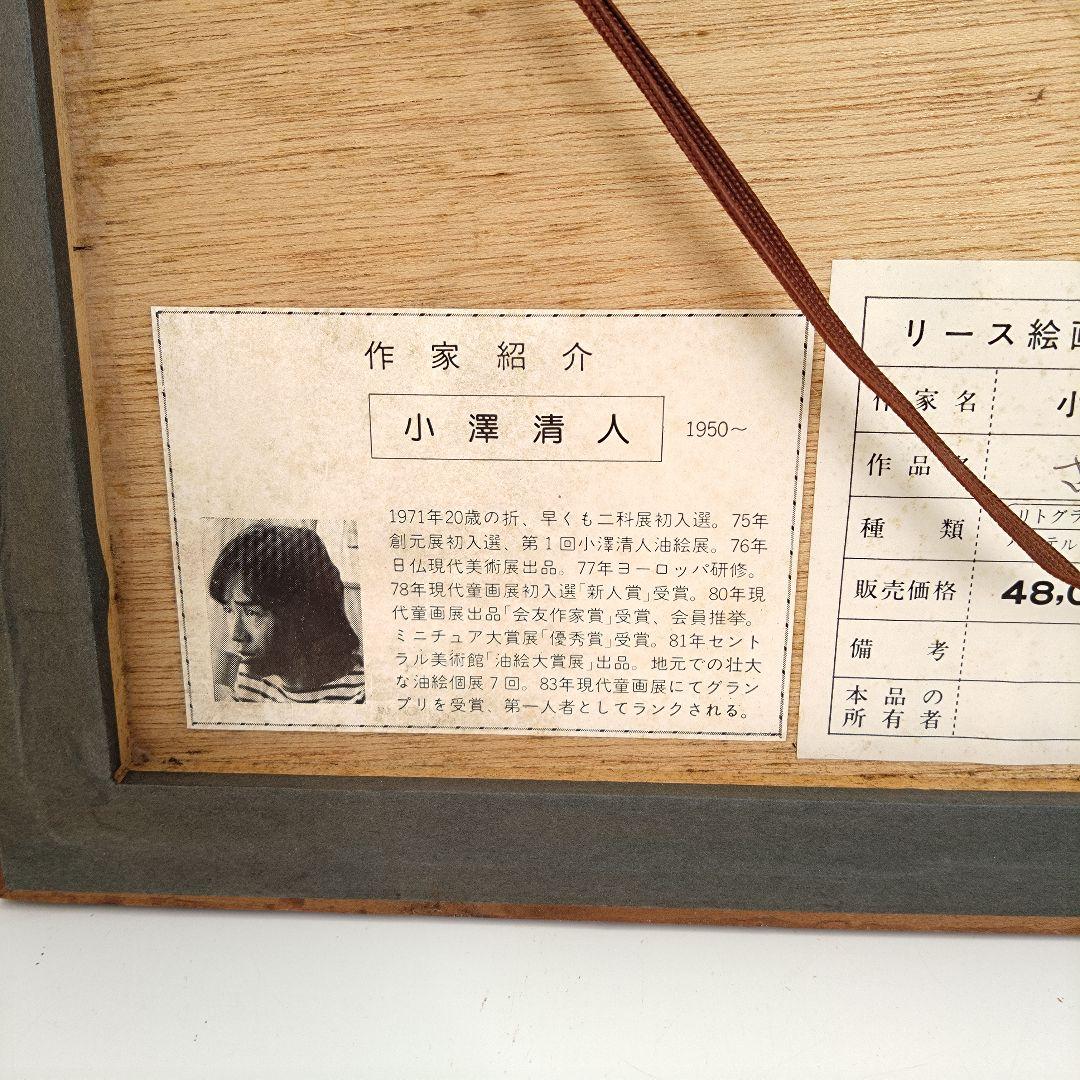 作家紹介
小澤清人 1950～
1971年20歳の折、早くも二科展初入選。75年
創元展初入選、第1回小澤清人油絵展。76年
日仏現代美術展出品。77年ヨーロッパ研修。
78年現代童画展初入選「新人賞」受賞。80年現
代童画展出品「会友作家賞」受賞、会員推挙。
ミニチュア大賞展「優秀賞」受賞。81年セント
ラル美術館「油絵大賞展」出品。地元での壮大
な油絵個展7回。83年現代童画展にてグラン
プリを受賞、第一人者としてランクされる。
リース絵画
作家名 小
作品名
種類 リトグラ
販売価格 48,0
備考
本品の
所有者